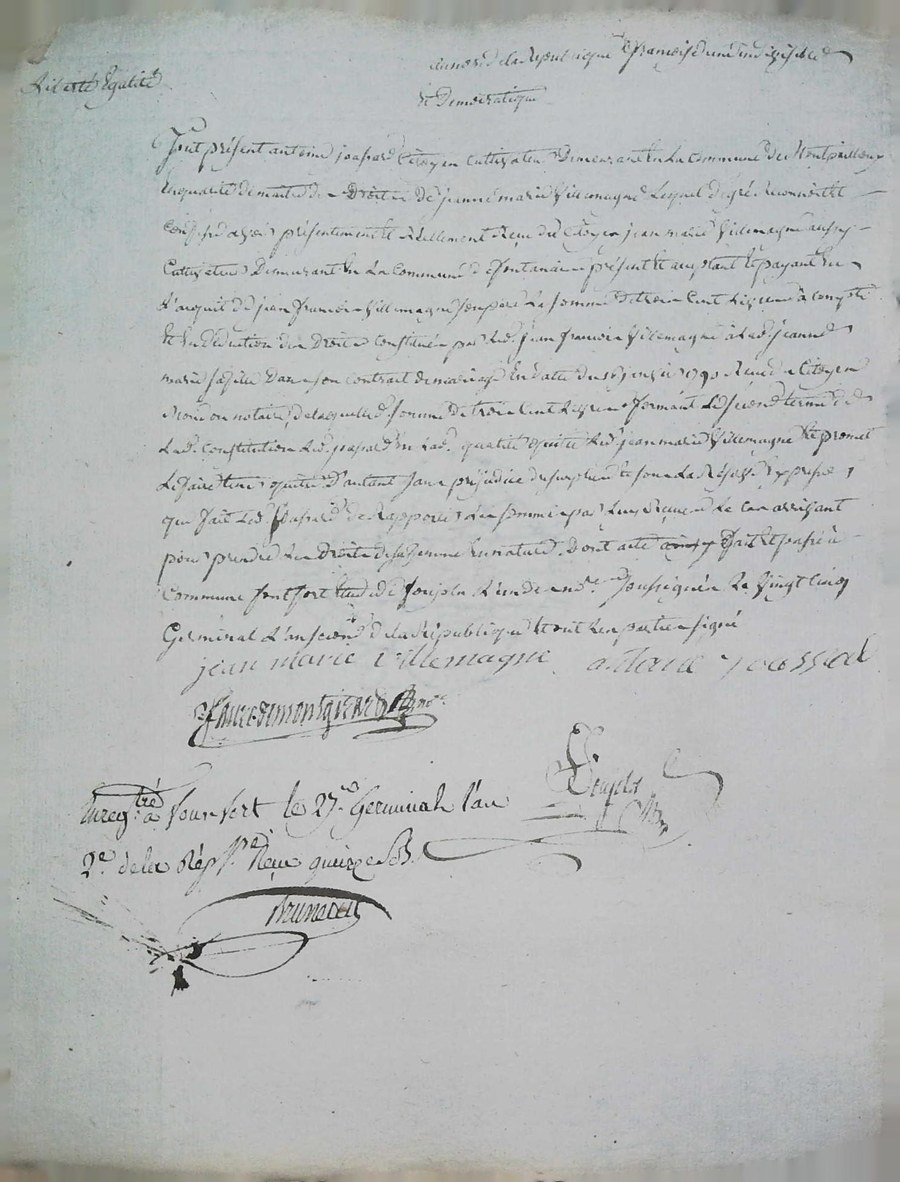 Liberté Égalité
au nom de la Republique francoise une indivisible
et Democratique
fut présent antoine joassard Citoyen Cultivateur Demeurant en La Commune de
En qualité de maitre des Droits de jeanne marie Villemagne Lequel de gré reconnoit et
Confesse avoir présentement et réellement Reçu du Citoyen jean marie Villemagne aussy
Cultivateur Demeurant En La Commune de fontanes présent et acceptant et payant en
L'acquit de jean francois Villemagne son pere La somme de trois Cent Livres à compte
et en déduction des Droits Constitués par Led. jean francois Villemagne à Lad. jeanne
marie sa fille Dans son contrat de mariage En date du 1790 Citoyen
notaire, de laquelle somme de trois Cent Livres formant Le second terme de
Lad. Constitution Led. joassard en Lad. qualité quitte Led. jean marie Villemagne Et promet
Le faire tenir quitte D'autant sans préjudice du surplus et sous La Réserve Expresse
que fait Led. joassard de Rapporter Les sommes par Luy Reçues Le cas arrivant
pour prendre Les Droits de sa femme En nature. Dont acte fait Et passé à
Commune fontfort Etude de Soussignés Le Vingt Cinq
Germinal L'an second de la République Et ont Les parties signé
jean marie Villemagne antoine joassard
Enregtré à fontfort le 27 Germinal l'an
2e de la Rép Reçu quinze sols